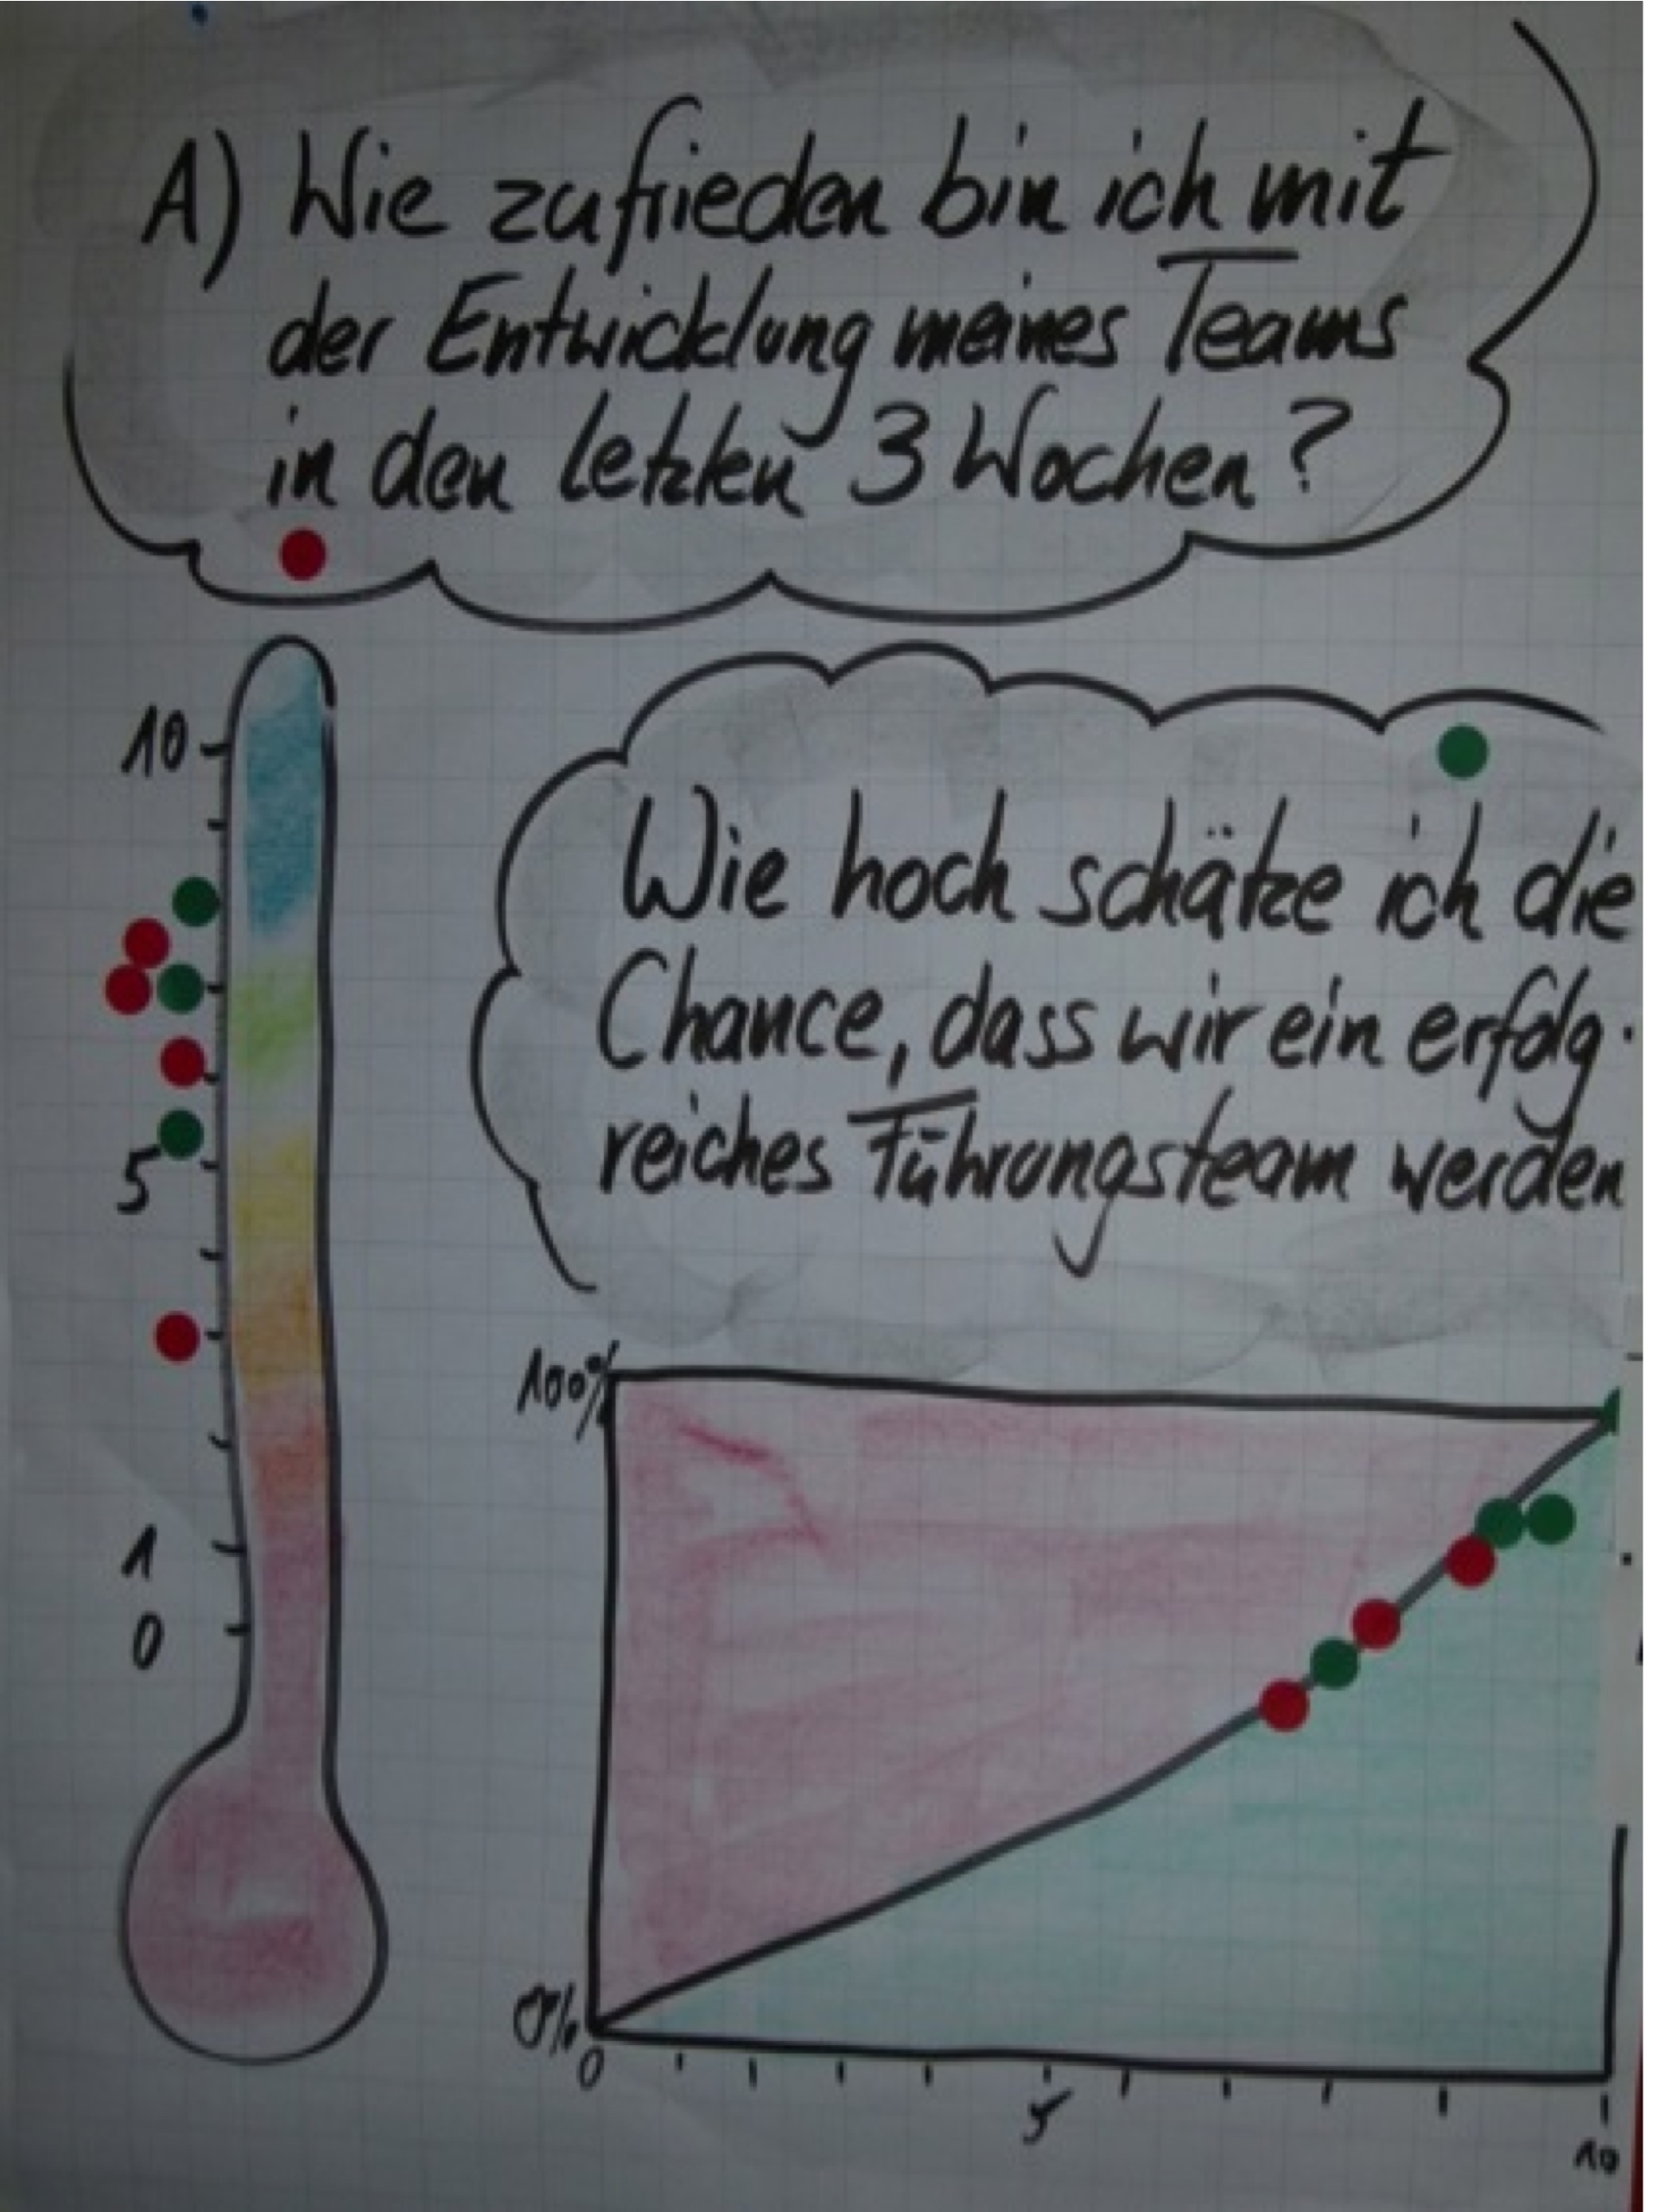 A) Wie zufrieden bin ich mit
der Entwicklung meines Teams
in den letzten 3 Wochen?
10
5
1
0
Wie hoch schätze ich die
Chance, dass wir ein erfolg-
reiches Führungsteam werden
100%
0%
0
5
10